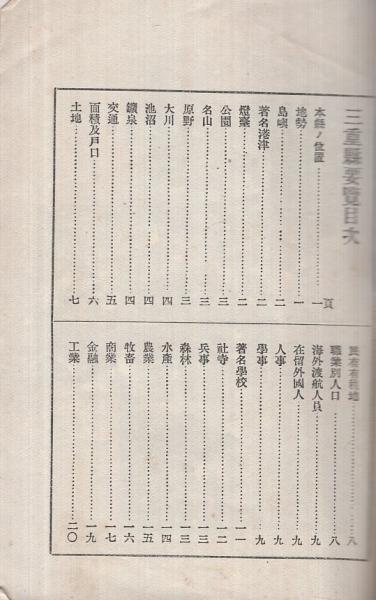 三重縣要覽目次
頁
本縣ノ位置…………一
地勢…………一
島嶼…………二
著名港津…………二
燈臺…………二
公園…………三
名山…………三
原野…………三
大川…………四
池沼…………四
鑛泉…………四
交通…………五
面積及戶口…………六
土地…………七
民有有租地…………八
職業別人口…………八
海外渡航人員…………九
在留外國人…………九
人事…………九
學事…………九
著名學校…………一一
社寺…………一二
兵事…………一三
森林…………一三
水產…………一四
農業…………一五
牧畜…………一六
商業…………一七
金融…………一九
工業…………二〇